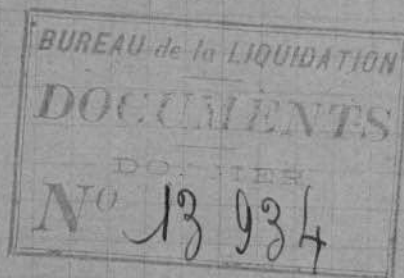 BUREAU de la LIQUIDATION
DOCUMENTS
DOSSIER
Nº 13 934